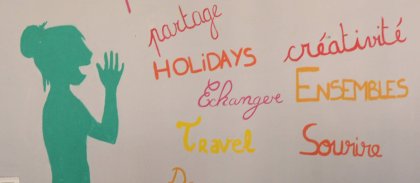 partage
HOLiDAYS
créativité
Echanger
ENSEMBLES
Travel
Sourire